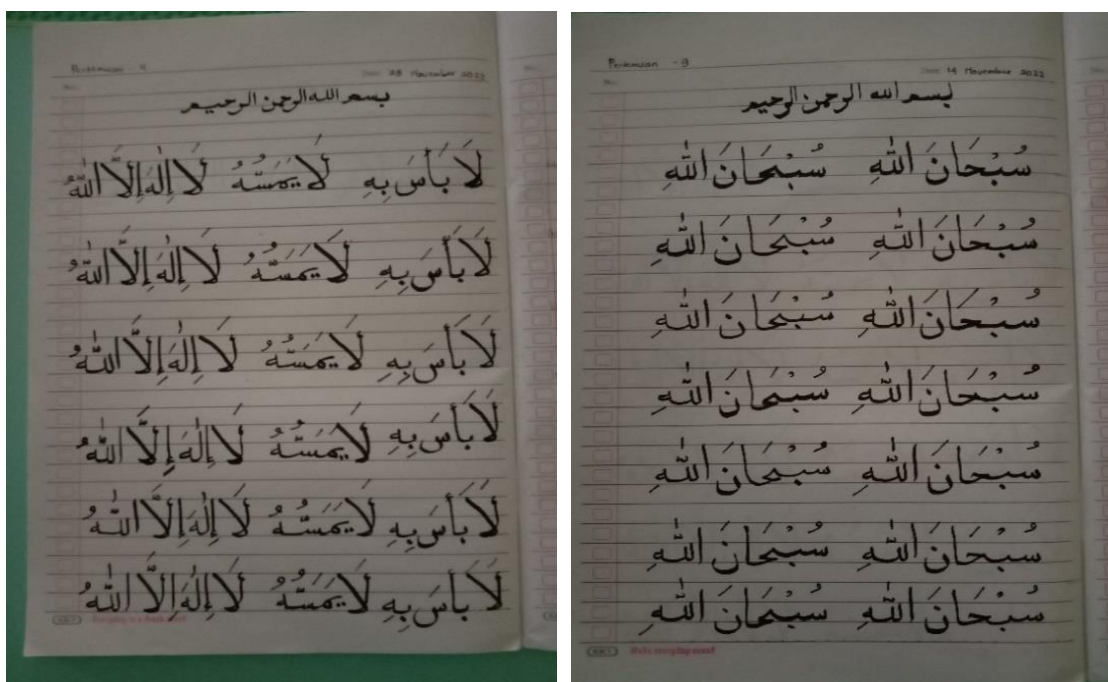 Pertemuan
Date: 28 November 2022
No:
بسم الله الرحمن الرحيم
لَا بَأْسَ بِهِ لَا يَمَسُّهُ لَا إِلٰهَ إِلَّا اللّٰهُ
لَا بَأْسَ بِهِ لَا يَمَسُّهُ لَا إِلٰهَ إِلَّا اللّٰهُ
لَا بَأْسَ بِهِ لَا يَمَسُّهُ لَا إِلٰهَ إِلَّا اللّٰهُ
لَا بَأْسَ بِهِ لَا يَمَسُّهُ لَا إِلٰهَ إِلَّا اللّٰهُ
لَا بَأْسَ بِهِ لَا يَمَسُّهُ لَا إِلٰهَ إِلَّا اللّٰهُ
لَا بَأْسَ بِهِ لَا يَمَسُّهُ لَا إِلٰهَ إِلَّا اللّٰهُ
KIKY Everyday is a fresh start
Pertemuan - 9
Date: 14 November 2022
No:
بسم الله الرحمن الرحيم
سُبْحَانَ اللّٰهِ سُبْحَانَ اللّٰهِ
سُبْحَانَ اللّٰهِ سُبْحَانَ اللّٰهِ
سُبْحَانَ اللّٰهِ سُبْحَانَ اللّٰهِ
سُبْحَانَ اللّٰهِ سُبْحَانَ اللّٰهِ
سُبْحَانَ اللّٰهِ سُبْحَانَ اللّٰهِ
سُبْحَانَ اللّٰهِ سُبْحَانَ اللّٰهِ
سُبْحَانَ اللّٰهِ سُبْحَانَ اللّٰهِ
KIKY Make everyday count